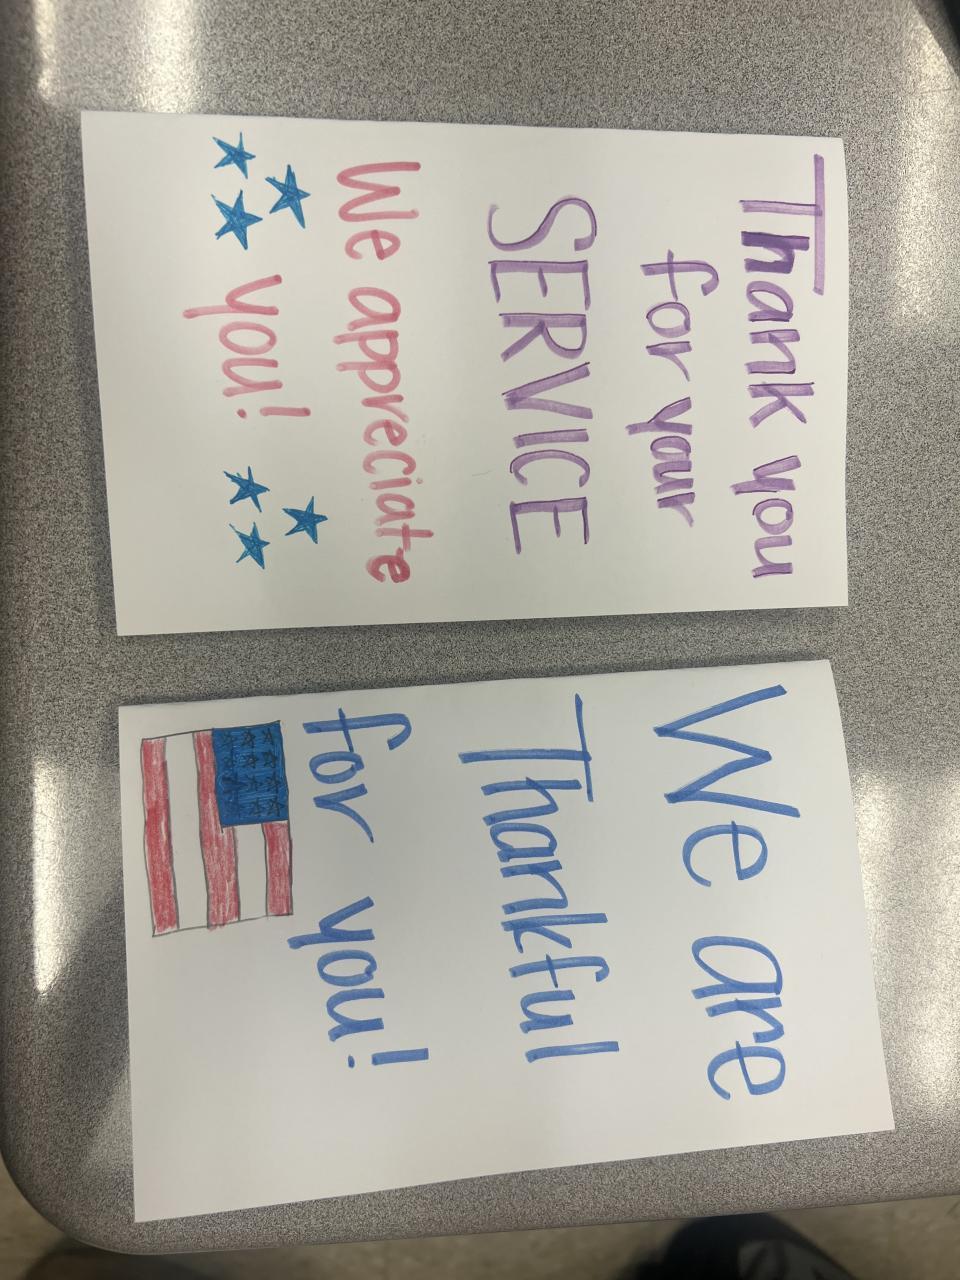 Thank you
for your
SERVICE
We appreciate
you!
We are
Thankful
for you!